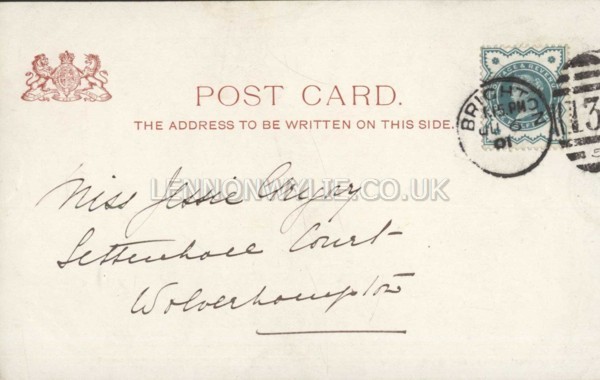 POST CARD.
THE ADDRESS TO BE WRITTEN ON THIS SIDE.
BRIGHTON
PM
JU 6
01
13
LENNONWYLIE.CO.UK
Miss Jessie
Settenhall Court
Wolverhampton